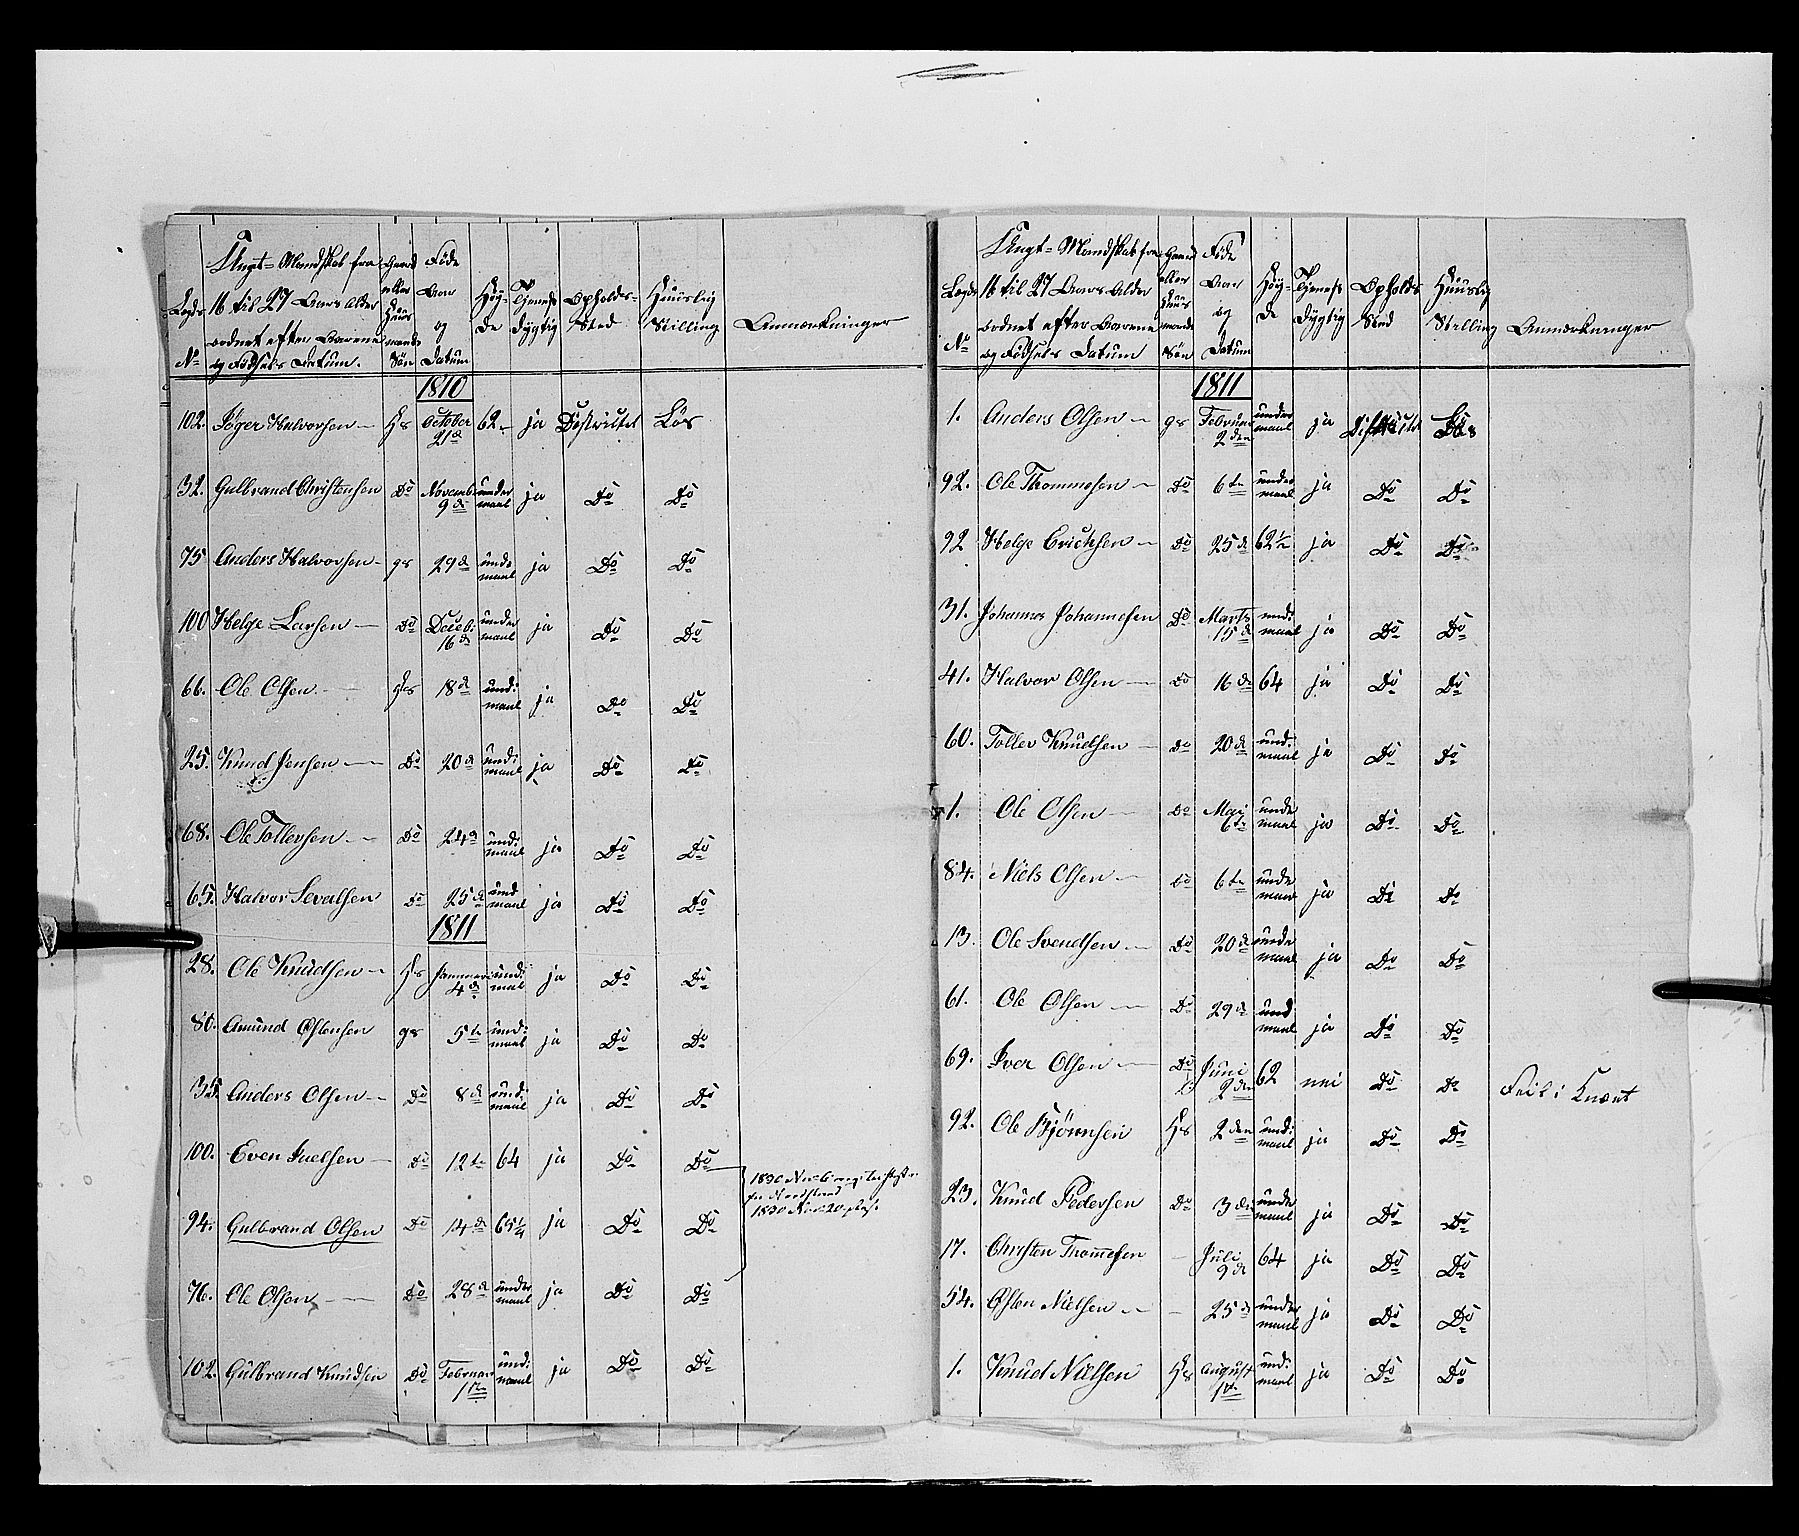 Legds No
Ungt-Mandskab fra 16 til 27 Aars Alder ordnet efter Aarene og Fødsels Datum.
Gaard eller Huus mands Søn
Føde Aar og Datum
Høyde
Tjenestdygtig
Opholds-Sted
Huuslig Stilling
Anmærkninger
1810
102. Jøger Halvorsen — Hs October 21d 62 — ja Districtet Løs
32. Gulbrand Christensen Do Novemb. 9de under maal ja Do Do
75 Anders Halvorsen — gs 29d und: maal ja Do Do
100 Helge Larsen — Do Decb: 16d under maal ja Do Do
66. Ole Olsen — Hs 18d und: maal ja Do Do
25. Knud Jensen — Do 20d und: maal ja Do Do
68. Ole Tollevsen — Do 24d und: maal ja Do Do
65. Halvor Sevalsen Do 25d und maal ja Do Do
1811
28. Ole Knudsen — Hs Januari 4d und: maal ja Do Do
80. Amund Østensen gs 5te und: maal ja Do Do
35. Anders Olsen — Do 8d und: maal ja Do Do
100. Even Juelsen — Do 12te 64 ja Do Do
1830 Nr. 6
1830 Nr. 20
94. Gulbrand Olsen Do 14d 65¼ ja Do Do
76. Ole Olsen — Do 28d under maal ja Do Do
102. Gulbrand Knudsen Do Februar 1te und: maal ja Do Do
Legds No
Ungt-Mandskab fra 16 til 27 Aars Alder ordnet efter Aarene og Fødsels Datum
Gaard eller Huus mands Søn
Føde Aar og Datum
Høyde
Tjenestdygtig
Opholds Sted
Huuslig Stilling
Anmærkninger
1811
1. Anders Olsen — gs Februar 2den under maal ja Districtet Løs
92. Ole Thommesen — Do 6te under maal ja Do Do
92 Helge Erichsen — Do 25d 62½ ja Do Do
31. Johannes Johannesen Do Marts 15d und: maal ja Do Do
41. Halvor Olsen — Do 16de 64 ja Do Do
60. Tollev Knudsen — Do 20d und: maal ja Do Do
1. Ole Olsen — Do Mai 6te unde maal ja Do Do
84. Niels Olsen — Do 6te unde maal ja Do Do
13. Ole Svendsen — Do 20d unde maal ja Do Do
61. Ole Olsen — Do 29d und maal ja Do Do
69. Iver Olsen — Do Juni 2den 62 nei Do Do Feil i Knæet
92. Ole Bjørnsen Hs 2den und: maal ja Do Do
23. Knud Pedersen Do 3die under maal ja Do Do
17. Christen Thomesen — Juli 9d 64 ja Do Do
54. Østen Nielsen — - 25d under maal ja Do Do
1. Knud Nielsen Hs August 1te und: maal ja Do Do